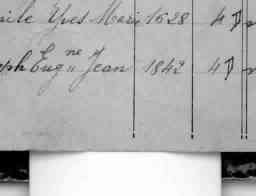 ile Yves Marie 1628 4 D
ph Eugne Jean 1842 4 D